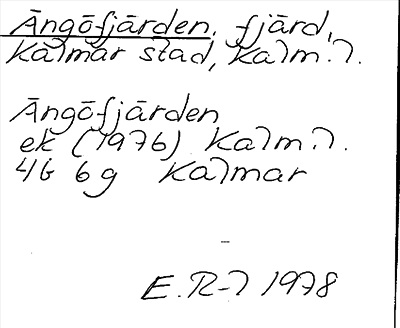 Ängöfjärden, fjärd,
Kalmar stad, Kalm.l.
Ängöfjärden
ek (1976) Kalm.l.
4G 6g Kalmar
E.R-l 1978